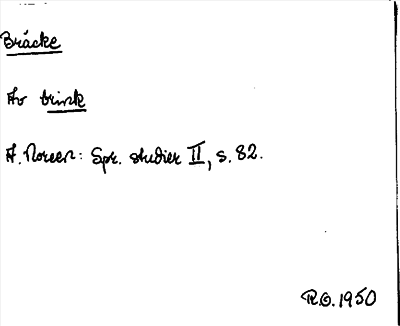 Bräcke
Av brink
A. Noreen: Spr. studier II, s. 82.
R.O. 1950